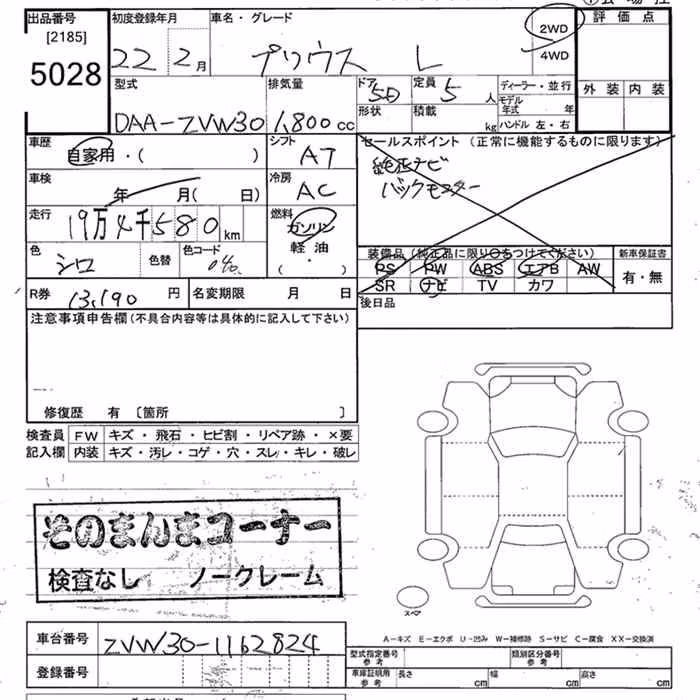 出品番号 初度登録年月 車名・グレード 評価点
[2185]
5028
22 年 2月 プリウス L 2WD
4WD
外装 内装
型式 排気量 ドア 定員 ディーラー・並行
DAA-ZVW30 1,800cc 5D 5人 モデル年式 年
形状 積載 kg ハンドル 左・右
車歴 シフト セールスポイント (正常に機能するものに限ります)
自家用・( ) AT
純正ナビ
バックモニター
車検 冷房
年 月( 日) AC
走行 燃料
19万4千580km ガソリン
軽油
色 シロ 色替 色コード 040
装備品 (純正品に限り○をつけてください) 新車保証書
PS PW ABS エアB AW 有・無
SR ナビ TV カワ
R券 13,190円 名変期限 月 日 後日品
注意事項申告欄(不具合内容等は具体的に記入して下さい)
修復歴 有 〔箇所 〕
検査員 FW キズ・飛石・ヒビ割・リペア跡・×要
記入欄 内装 キズ・汚レ・コゲ・穴・スレ・キレ・破レ
そのまんまコーナー
検査なし ノークレーム
スペア
A—キズ E—エクボ U—凹み W—補修跡 S—サビ C—腐食 XX—交換済
車台番号 ZVW30-1162824
型式指定番号 参考 類別区分番号 参考
登録番号
車庫証明用 参考 長さ cm 幅 cm 高さ cm